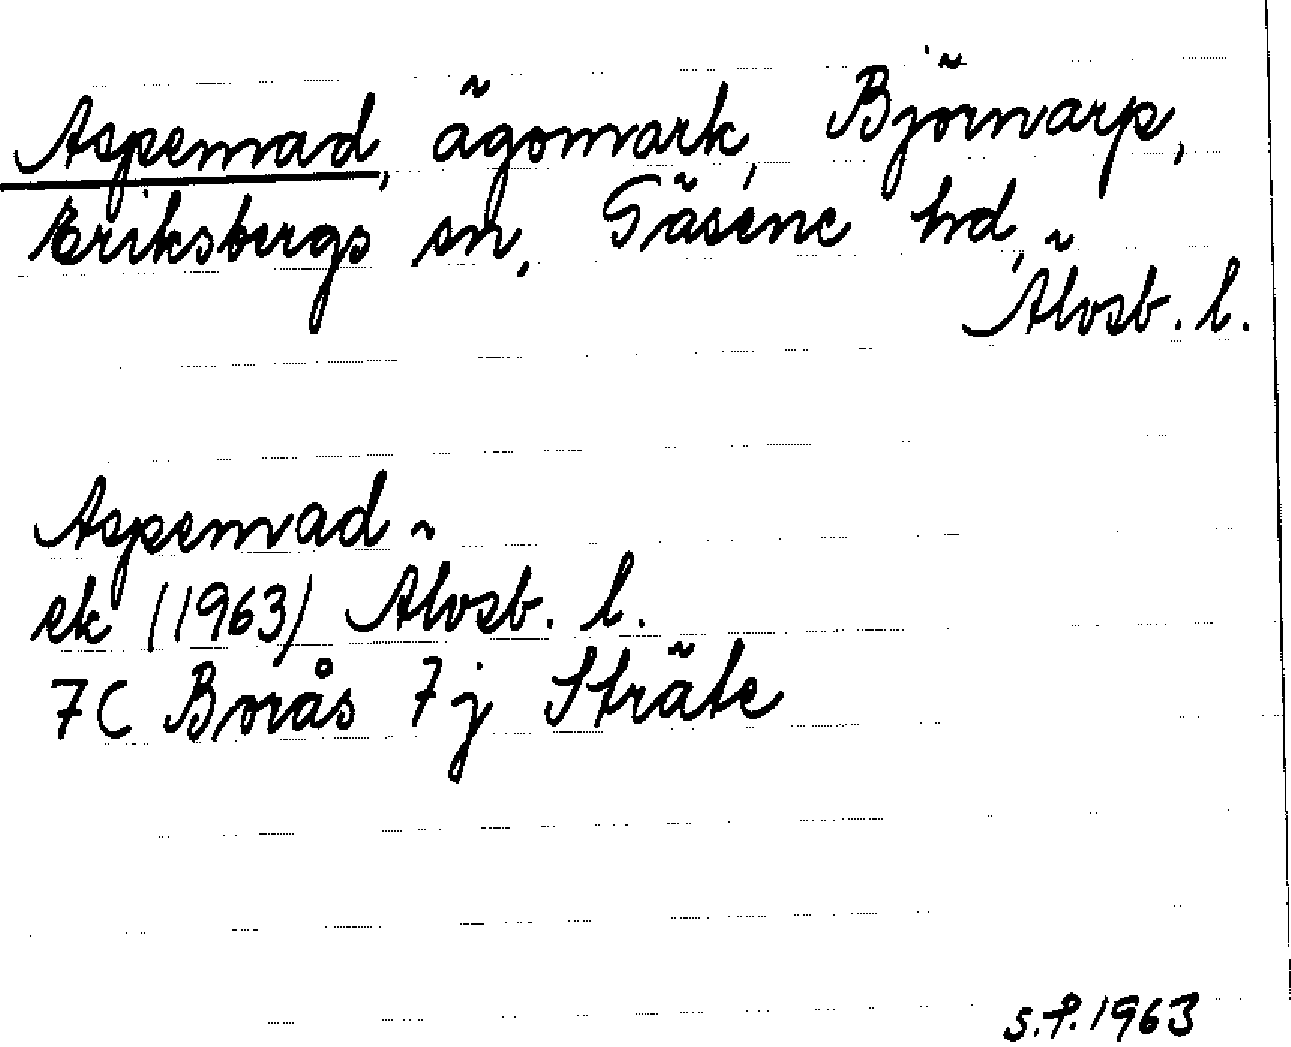 Aspenvad, ägomark, Björnvarp,
Eriksbergs sn, Gäsene hd,
Älvsb. l.
Aspenvad
ek (1963) Älvsb. l.
7C Borås 7j Sträte
1963